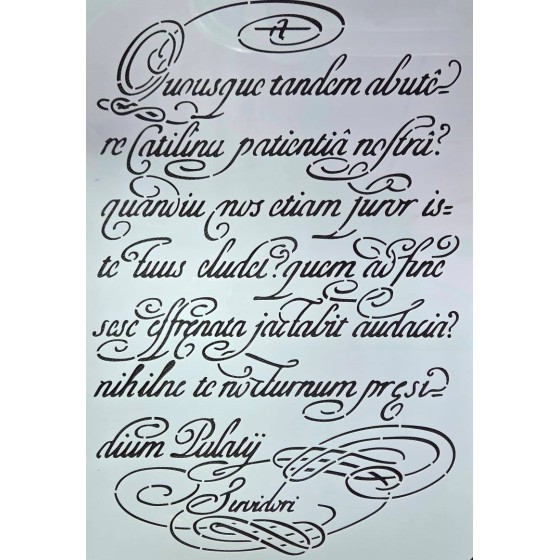 A
Quousque tandem abutê=
re Catilina patientiâ noſtrâ?
quandiu nos etiam furor is=
te tuus eludet? quem ad finē
sese effrenata jactabit audacia?
nihilne te nocturnum præsi-
dium Palatij
Servidori